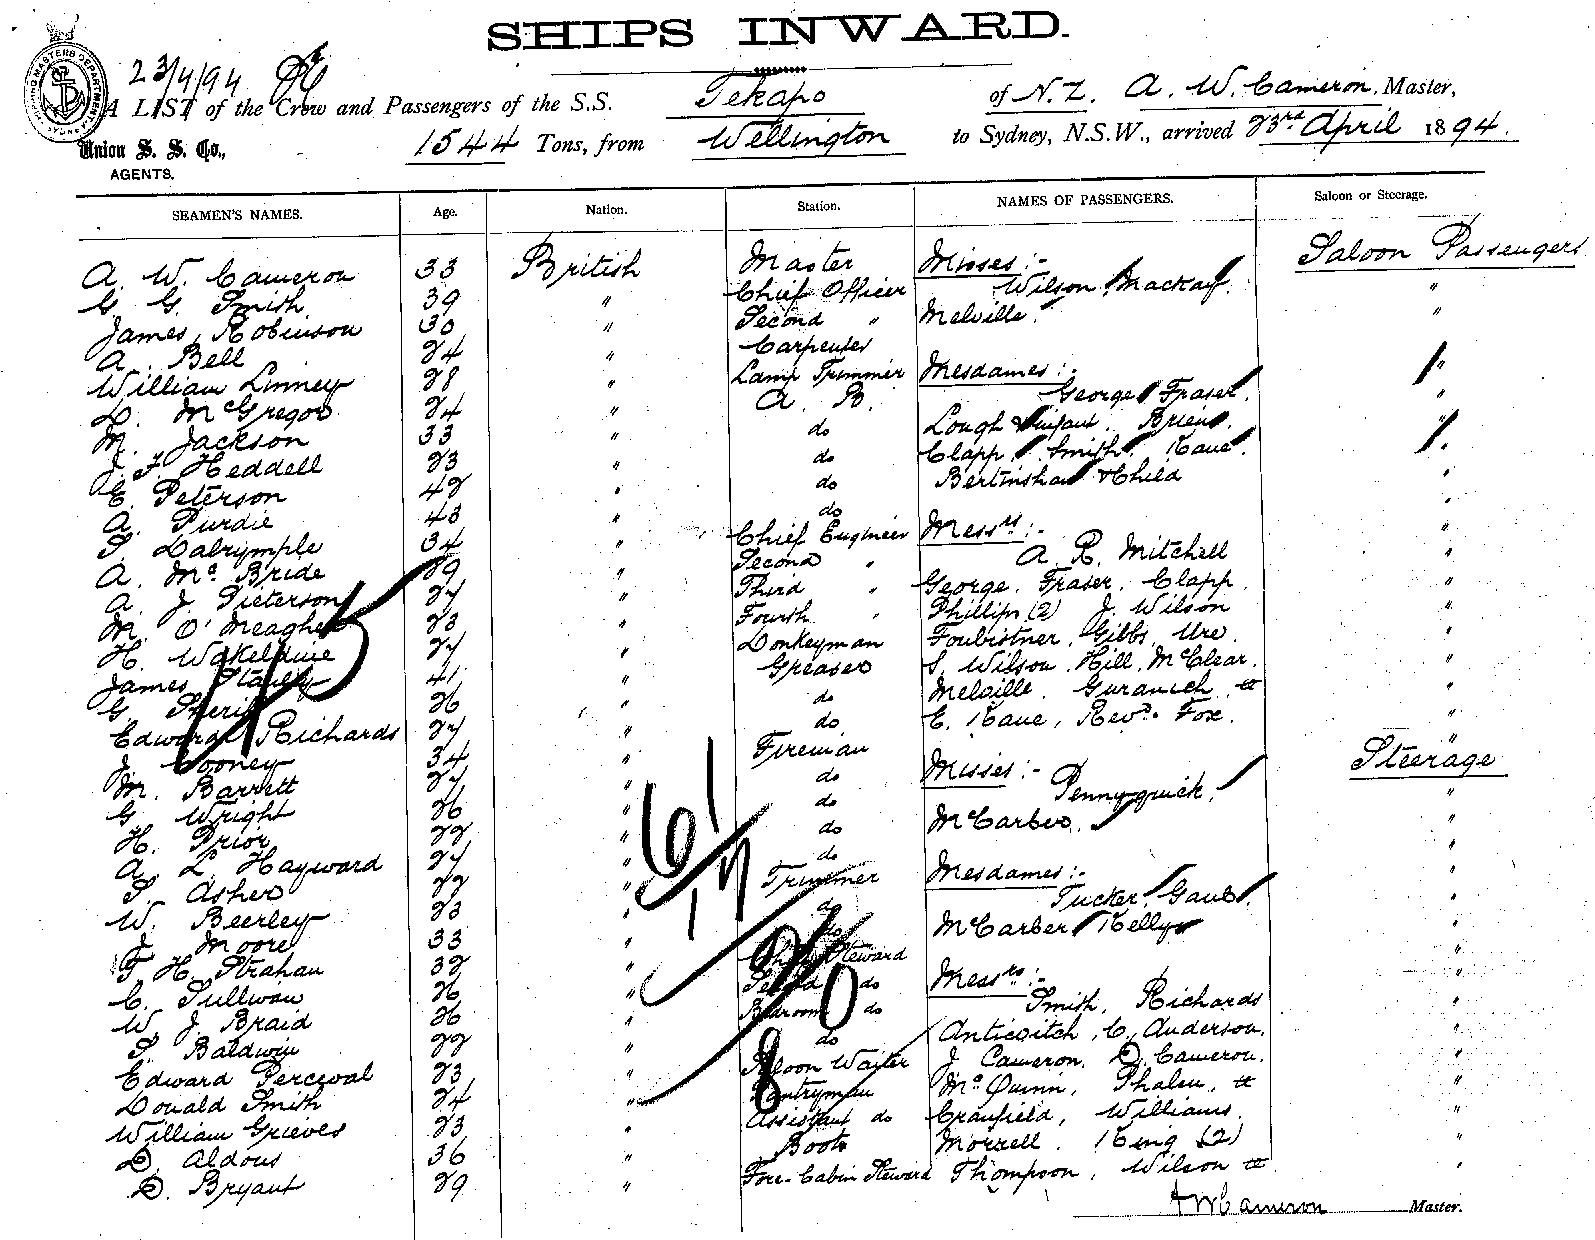 SHIPS INWARD.
23/4/94
A LIST of the Crew and Passengers of the S.S. Tekapo of N.Z. A. W. Cameron, Master,
Union S. S. Co., 1544 Tons, from Wellington to Sydney, N.S.W., arrived 23rd April 1894.
AGENTS.
SEAMEN'S NAMES. Age. Nation. Station. NAMES OF PASSENGERS. Saloon or Steerage.
A. W. Cameron 33 British Master Misses:- Saloon Passengers
G. G. Smith 39 " Chief Officer Wilson, Mackay. "
James Robinson 30 " Second " Melville. "
A. Bell 24 " Carpenter
William Linney 28 " Lamp Trimmer Mesdames:- "
D. McGregor 24 " A. B. George, Fraser. "
M. Jackson 33 " do Lough & infant. Brien. "
J. F. Heddell 23 " do Clapp. Smith. Kane. "
C. Peterson 42 " do Bertinshaw & Child "
A. Purdie 43 " do "
T. Dalrymple 34 " Chief Engineer Messrs:- "
A. Mc Bride 29 " Second " A. R. Mitchell "
A. J. Pieterson 27 " Third " George. Fraser. Clapp. "
M. O'Meagher 23 " Fourth " Phillips (2) J. Wilson "
H. Wakeldine 27 " Donkeyman Foubistner, Gibbs, Ure. "
James 41 " Greaser S. Wilson, Hill, McClear. "
G. 26 " do Melville. Guranich. "
Edward Richards 27 " do C. Kane, Revd. Fox. "
J. Cooney 34 " Fireman Misses:- Steerage
M. Barrett 27 " do Pennyquick, "
G. Wright 26 " do McCarber. "
H. Prior 22 " do "
A. L. Hayward 27 " do Mesdames:- "
T. Asher 22 " Trimmer Tucker, Gaub. "
W. Beerley 23 " do McCarber Kelly "
J. Moore 33 " do "
F. H. Strahan 32 " Chief Steward Messrs:- "
C. Sullivan 26 " Second do Smith, Richards "
W. J. Braid 26 " Bedroom do Anticvitch, C. Anderson. "
T. Baldwin 22 " do J. Cameron. D. Cameron. "
Edward Percival 23 " Saloon Waiter Mc Quinn, Phalen, "
Donald Smith 24 " Pantryman Cranfield, Williams. "
William Grieves 23 " Assistant do Morrell. King (2) "
D. Aldous 36 " Boots Thompson, Wilson "
D. Bryant 29 " Fore-Cabin Steward
A W Cameron Master.